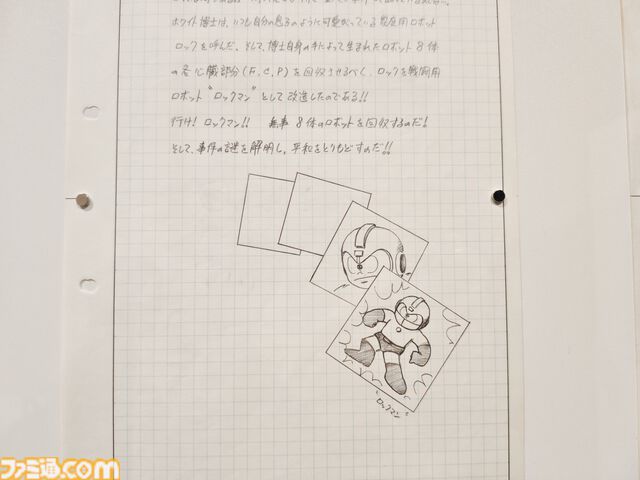 ホワイト博士は、いつも自分の息子のように可愛がっている家庭用ロボット
ロックを呼んだ。そして、博士自身の手によって生まれたロボット8体
の各心臓部分(F,C,P)を回収させるべく、ロックを戦闘用
ロボット"ロックマン"として改造したのである!!
行け! ロックマン!! 無事8体のロボットを回収するのだ!
そして、事件の謎を解明し、平和をとりもどすのだ!!
"ロックマン"
ファミ通.com